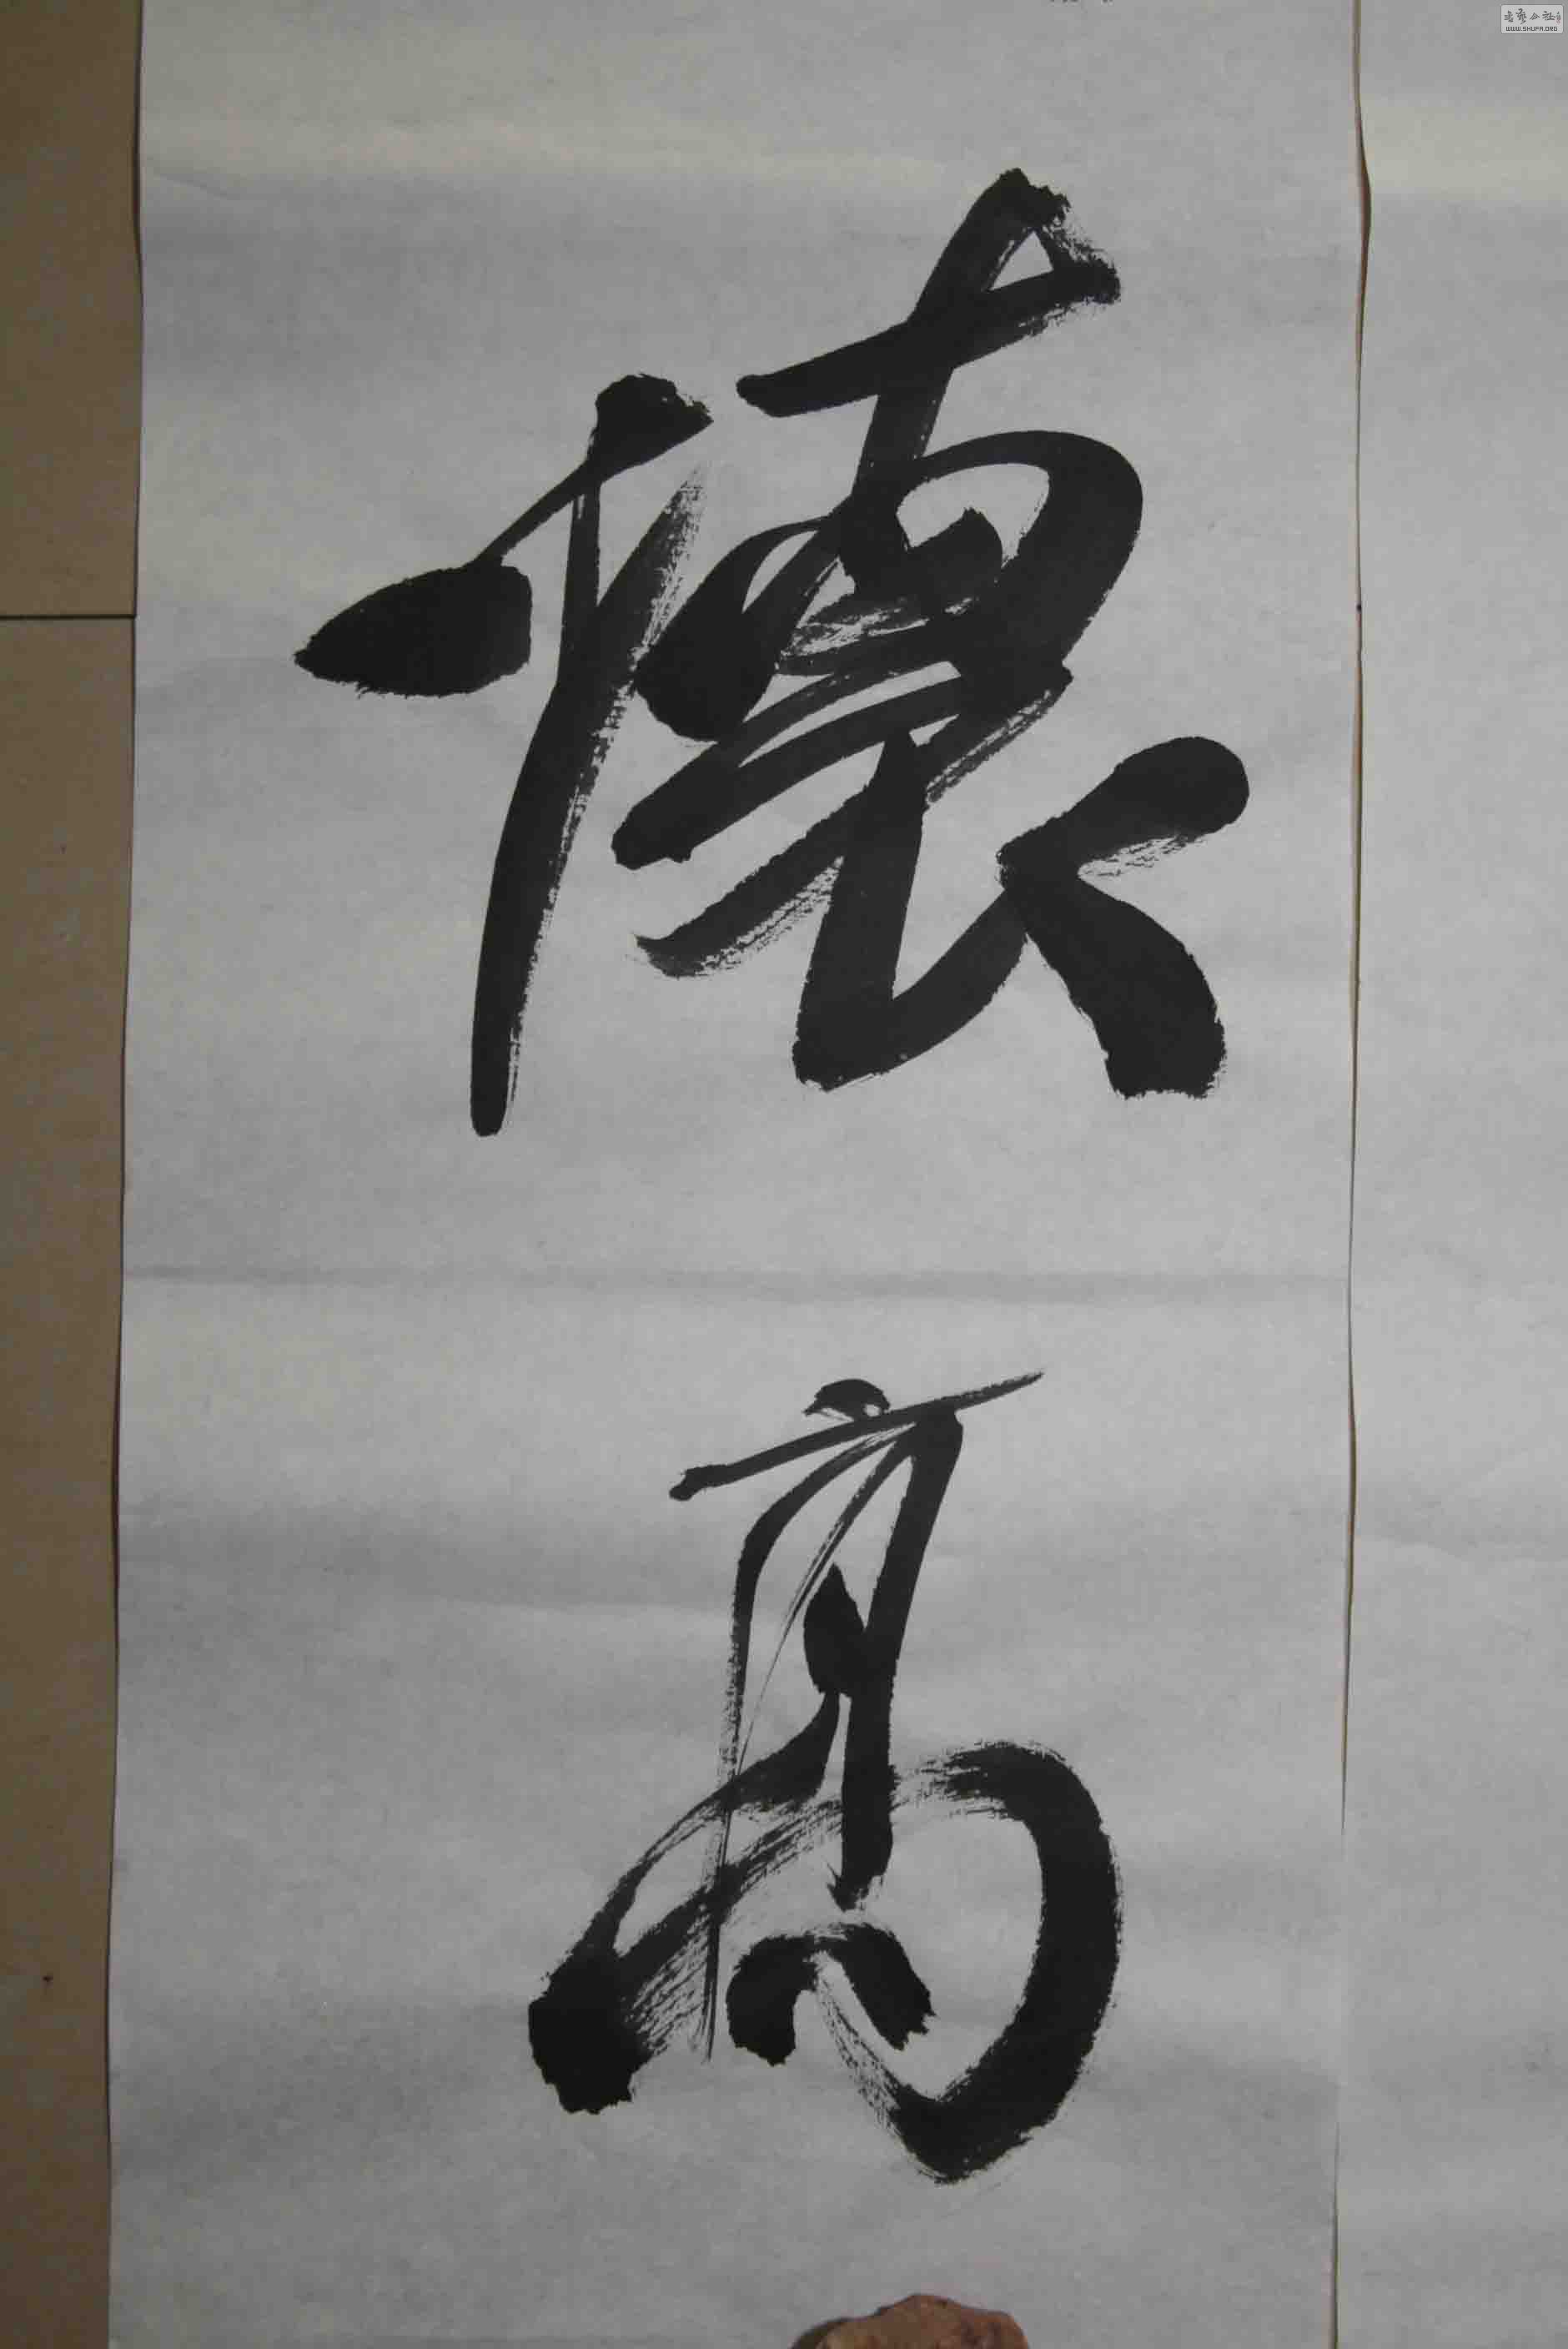 懷高
书艺公社
WWW.SHUFA.ORG